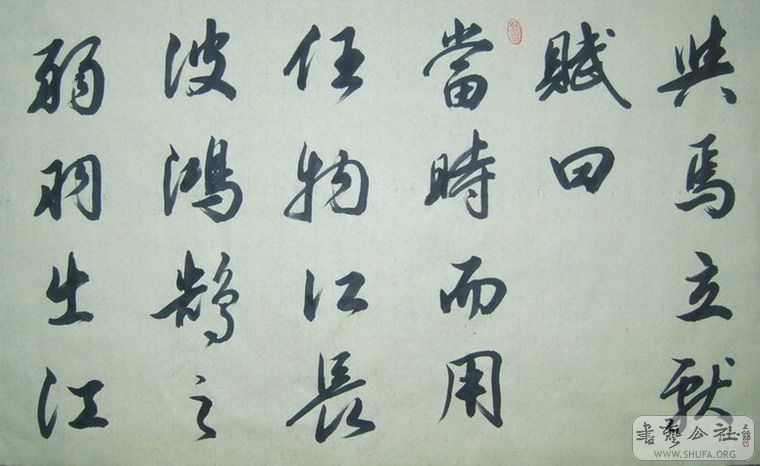 與馬立獻
賦曰
當時而用
任物江長
波鴻鵠之
弱羽出江
書藝公社
WWW.SHUFA.ORG